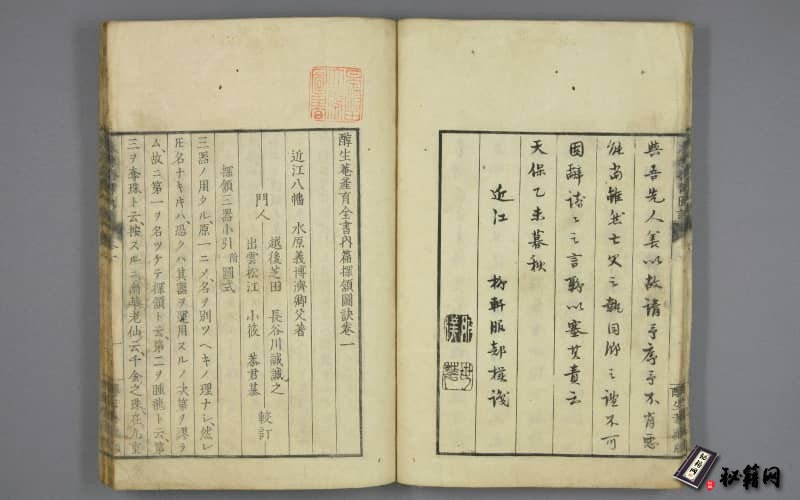 與吾先人善以故請予序予不肖悪
能尚雖然亡父之執同郷之誼不可
固辞
之言
以塞其責云
天保乙未暮秋
近江
柳軒服部
醇生菴産育全書内篇探頷圖訣卷一
近江八幡 水原義博濟卿父著
越後芝田 長谷川誠誠之
門人 較訂
出雲松江 小篠 君基
探頷三器小引 附圖式
三器ノ用タル、原一ニメ、名ヲ別ツヘキノ理ナシ、然レ
ᄐ名ナキᄐハ、恐クハ其器ヲ運用スルノ次第ヲ謬ラ
ム、故ニ第一ヲ名ツケテ探頷ト云、第二ヲ睡龍ト云、第
三ヲ奪珠ト云、按スルニ、南華老仙云、千金之珠、在九重
秘籍网